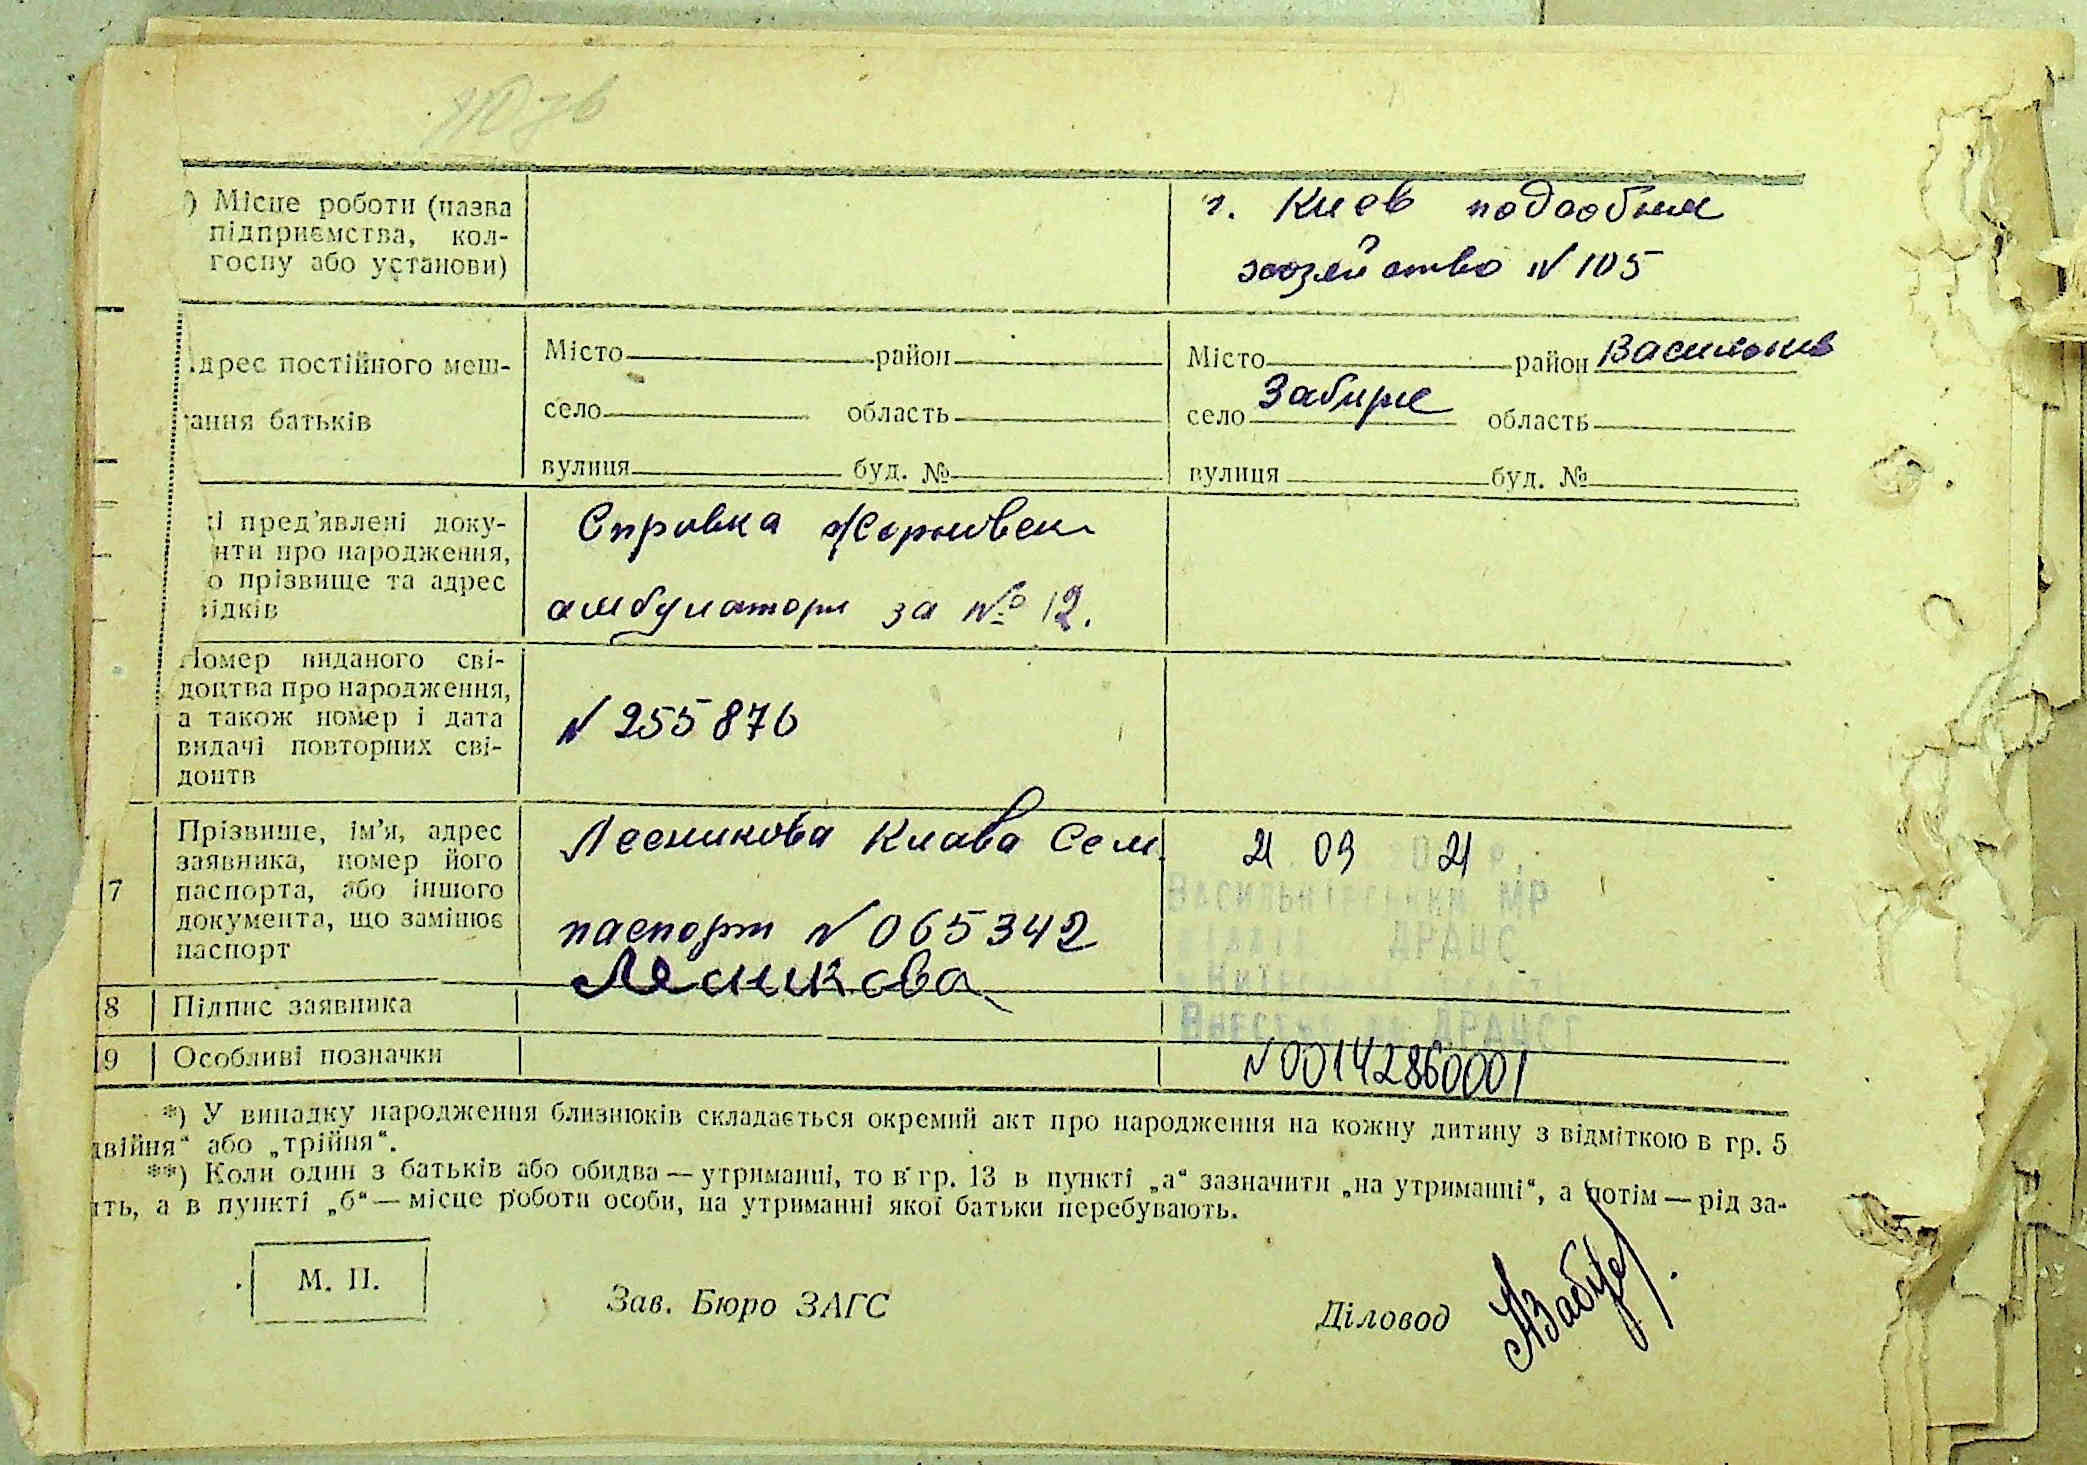 ) Місце роботи (назва
підприємства, кол-
госпу або установи)
г. Киев подсобное
хозяйство № 105
дрес постійного меш-
ання батьків
Місто район
село область
вулиця буд. №
Місто район Васильков
село Забирье область
вулиця буд. №
і пред'явлені доку-
нти про народження,
о прізвище та адрес
відків
Справка
амбулатори за № 12.
Номер виданого сві-
доцтва про народження,
а також номер і дата
видачі повторних сві-
доцтв
N 255876
17 Прізвище, ім'я, адрес
заявника, номер його
паспорта, або іншого
документа, що замінює
паспорт
Лесникова Клава Сем.
паспорт N 065342
21 09 21
Васильківський МР
відділ ДРАЦС
Внесено до ДРАЦСГ
N00142860001
18 Підпис заявника
Лесникова
19 Особливі позначки
*) У випадку народження близнюків складається окремий акт про народження на кожну дитину з відміткою в гр. 5
двійня“ або „трійня“.
**) Коли один з батьків або обидва — утриманці, то в гр. 13 в пункті „а“ зазначити „на утриманці“, а потім — рід за-
ять, а в пункті „б“ — місце роботи особи, на утриманні якої батьки перебувають.
М. П.
Зав. Бюро ЗАГС
Діловод